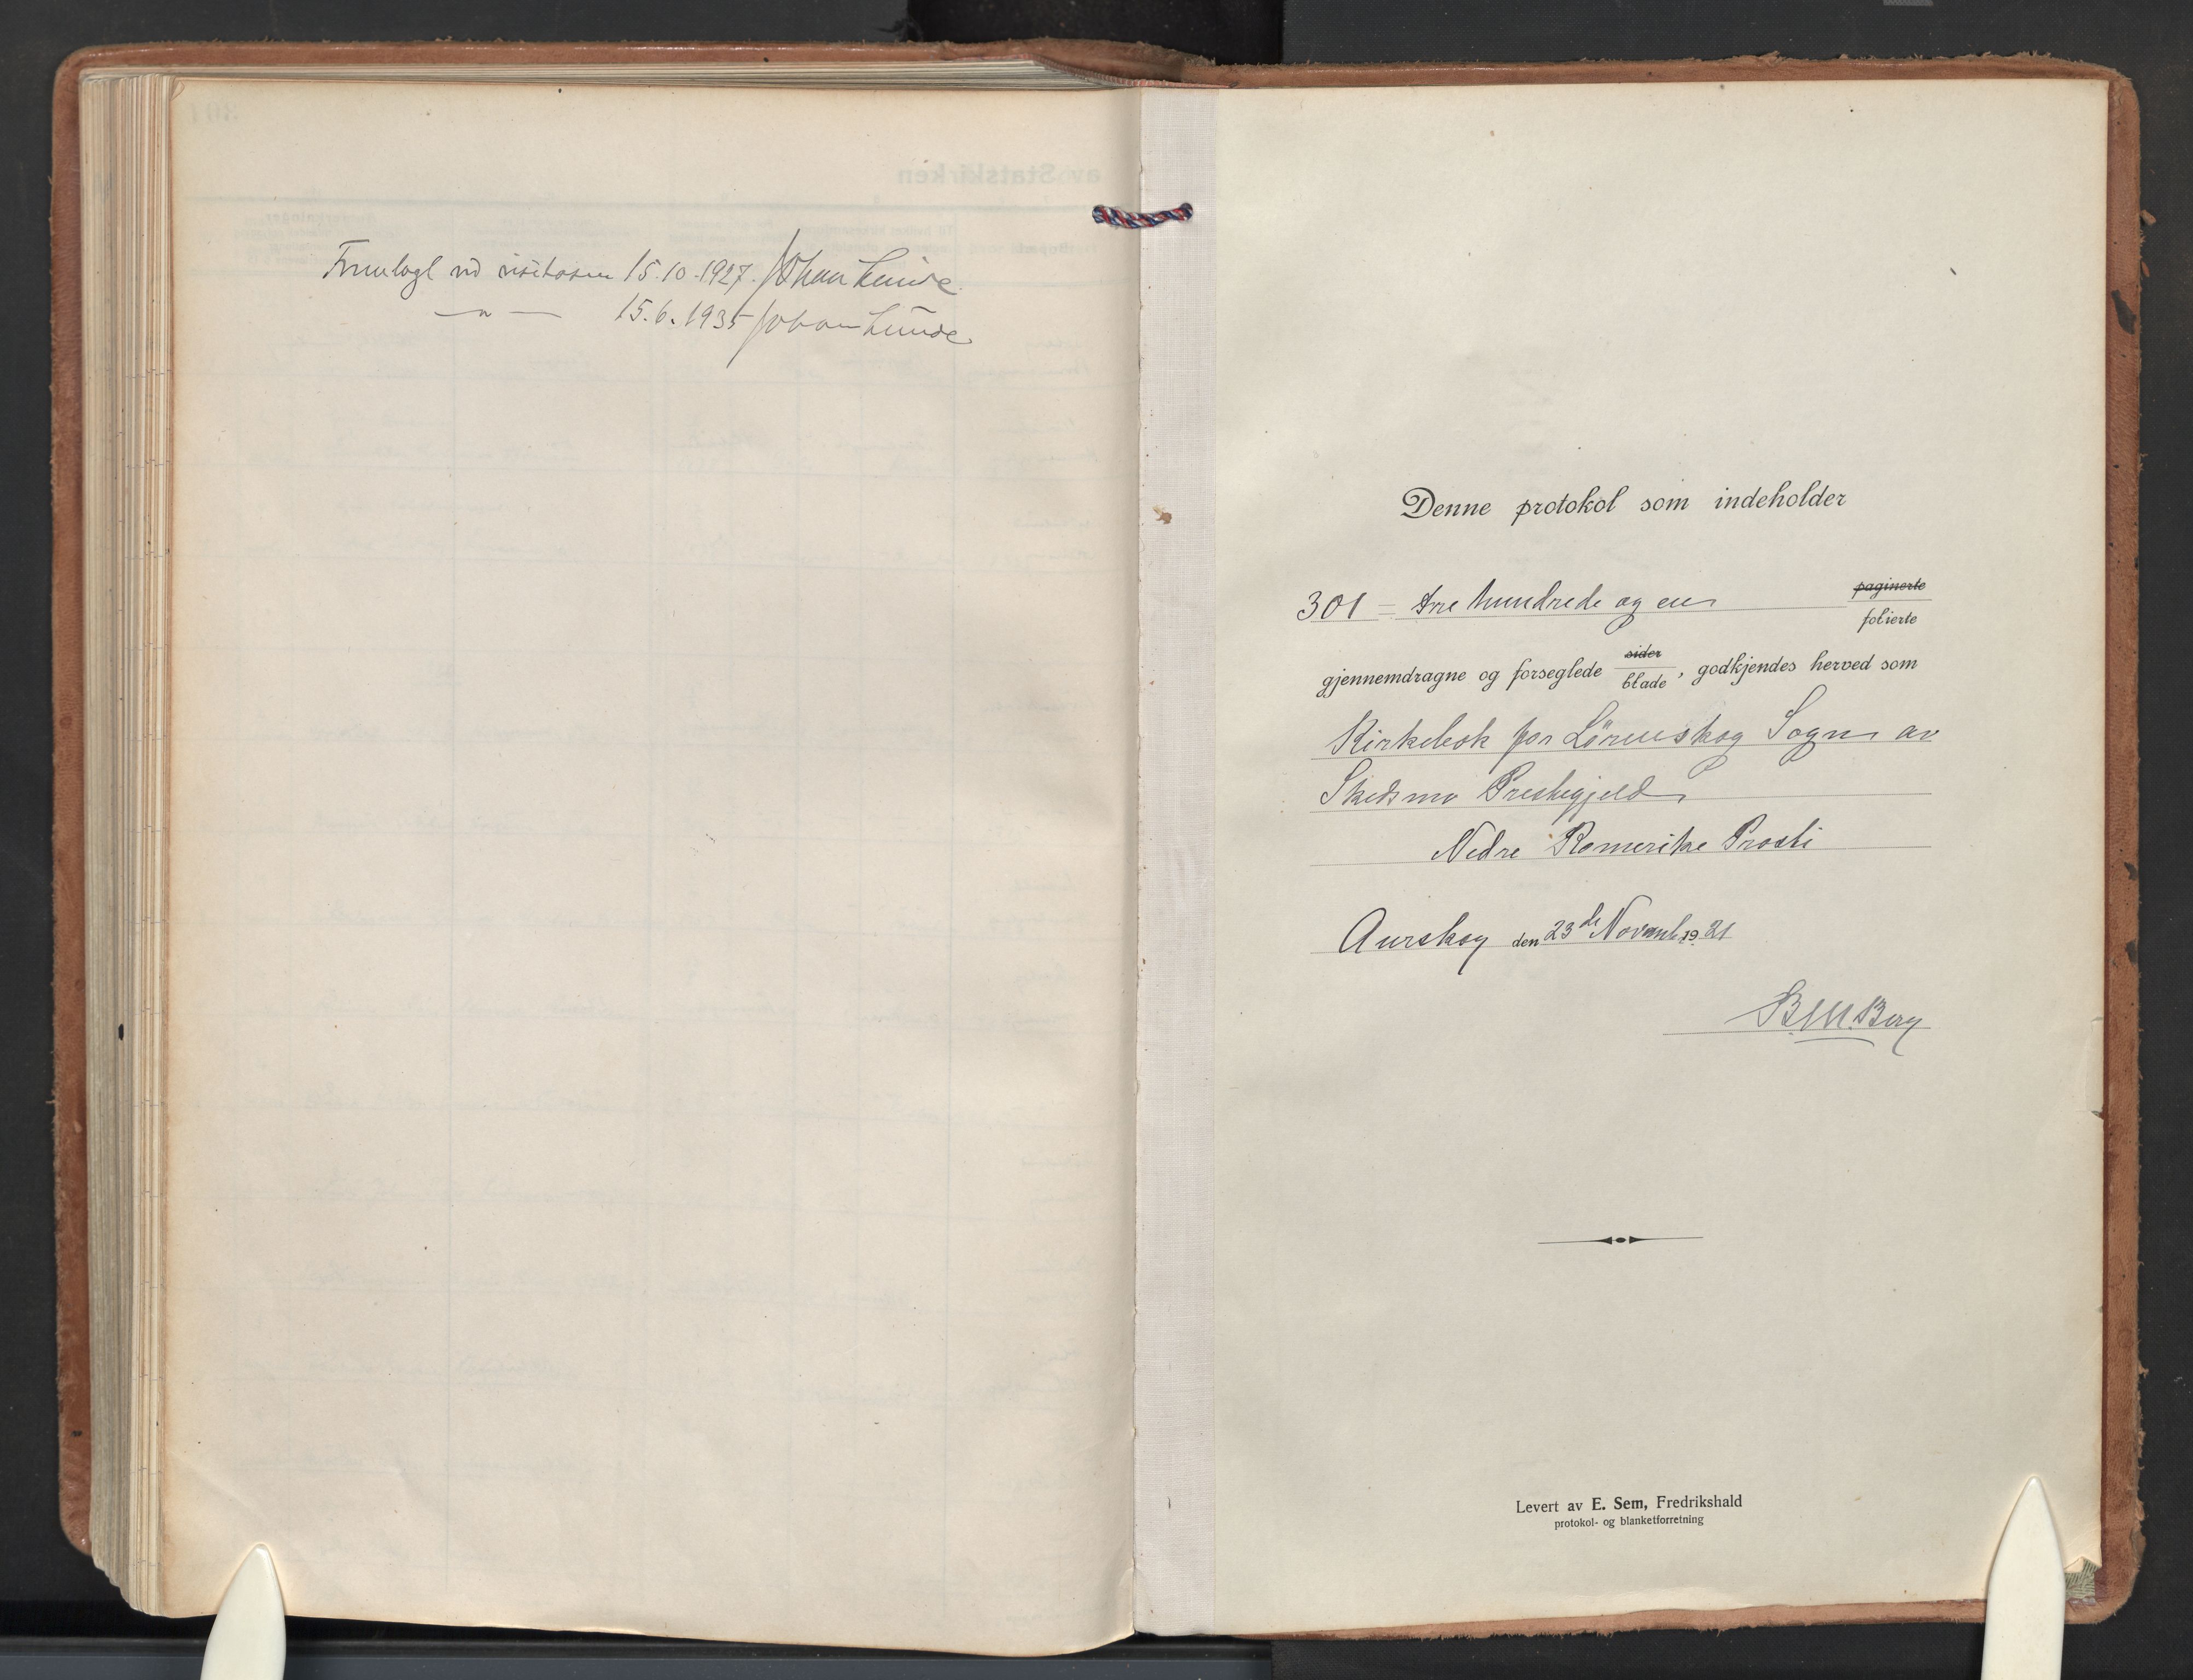 Fremlagt ved visitasen 15.10.1927. Johan Lunde.
— " — 15.6.1935 Johan Lunde
Denne protokol som indeholder
301 = tre hundrede og en paginerte
folierte
gjennemdragne og forseglede sider
blade, godkjendes herved som
Kirkebok for Lörenskog Sogn av
Skedsmo Prestegjeld
Nedre Romerike Prosti
Aurskog den 23de Novemb. 1921
B.M. Berg
Levert av E. Sem, Fredrikshald
protokol- og blanketforretning